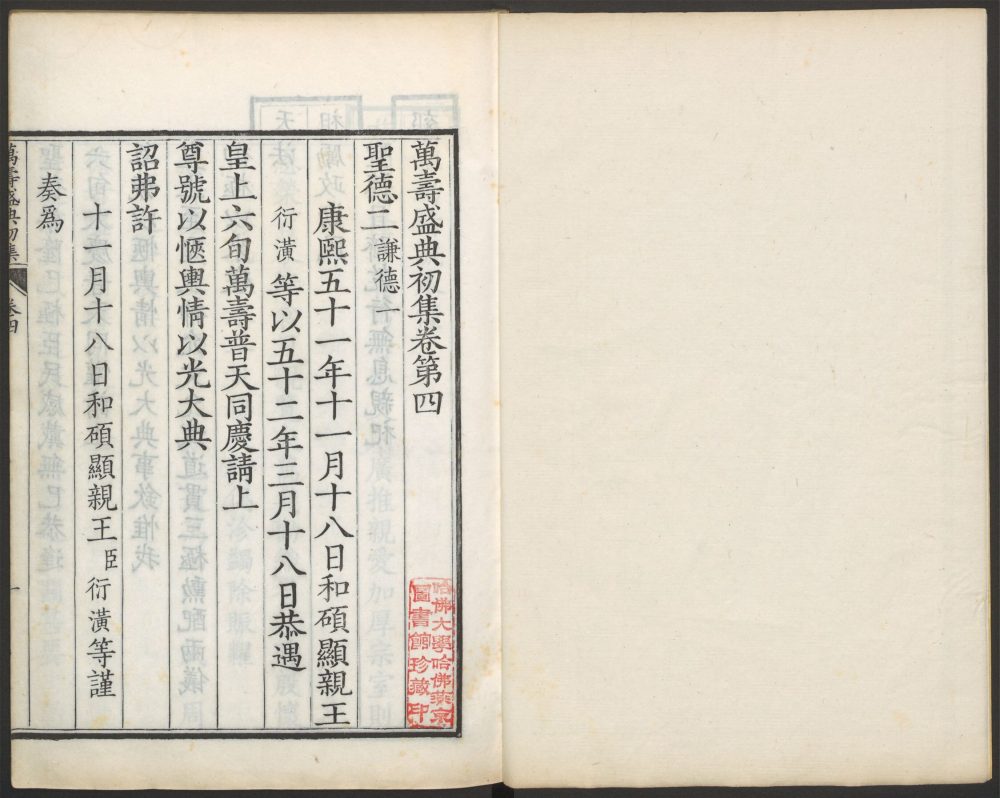 萬壽盛典初集卷第四
聖德二 謙德一
康熙五十一年十一月十八日和碩顯親王
衍潢等以五十二年三月十八日恭遇
皇上六旬萬壽普天同慶請上
尊號以愜輿情以光大典
詔弗許
十一月十八日和碩顯親王臣衍潢等謹
奏爲
萬壽盛典初集 卷四 一
哈佛大學哈佛燕京
圖書館珍藏印